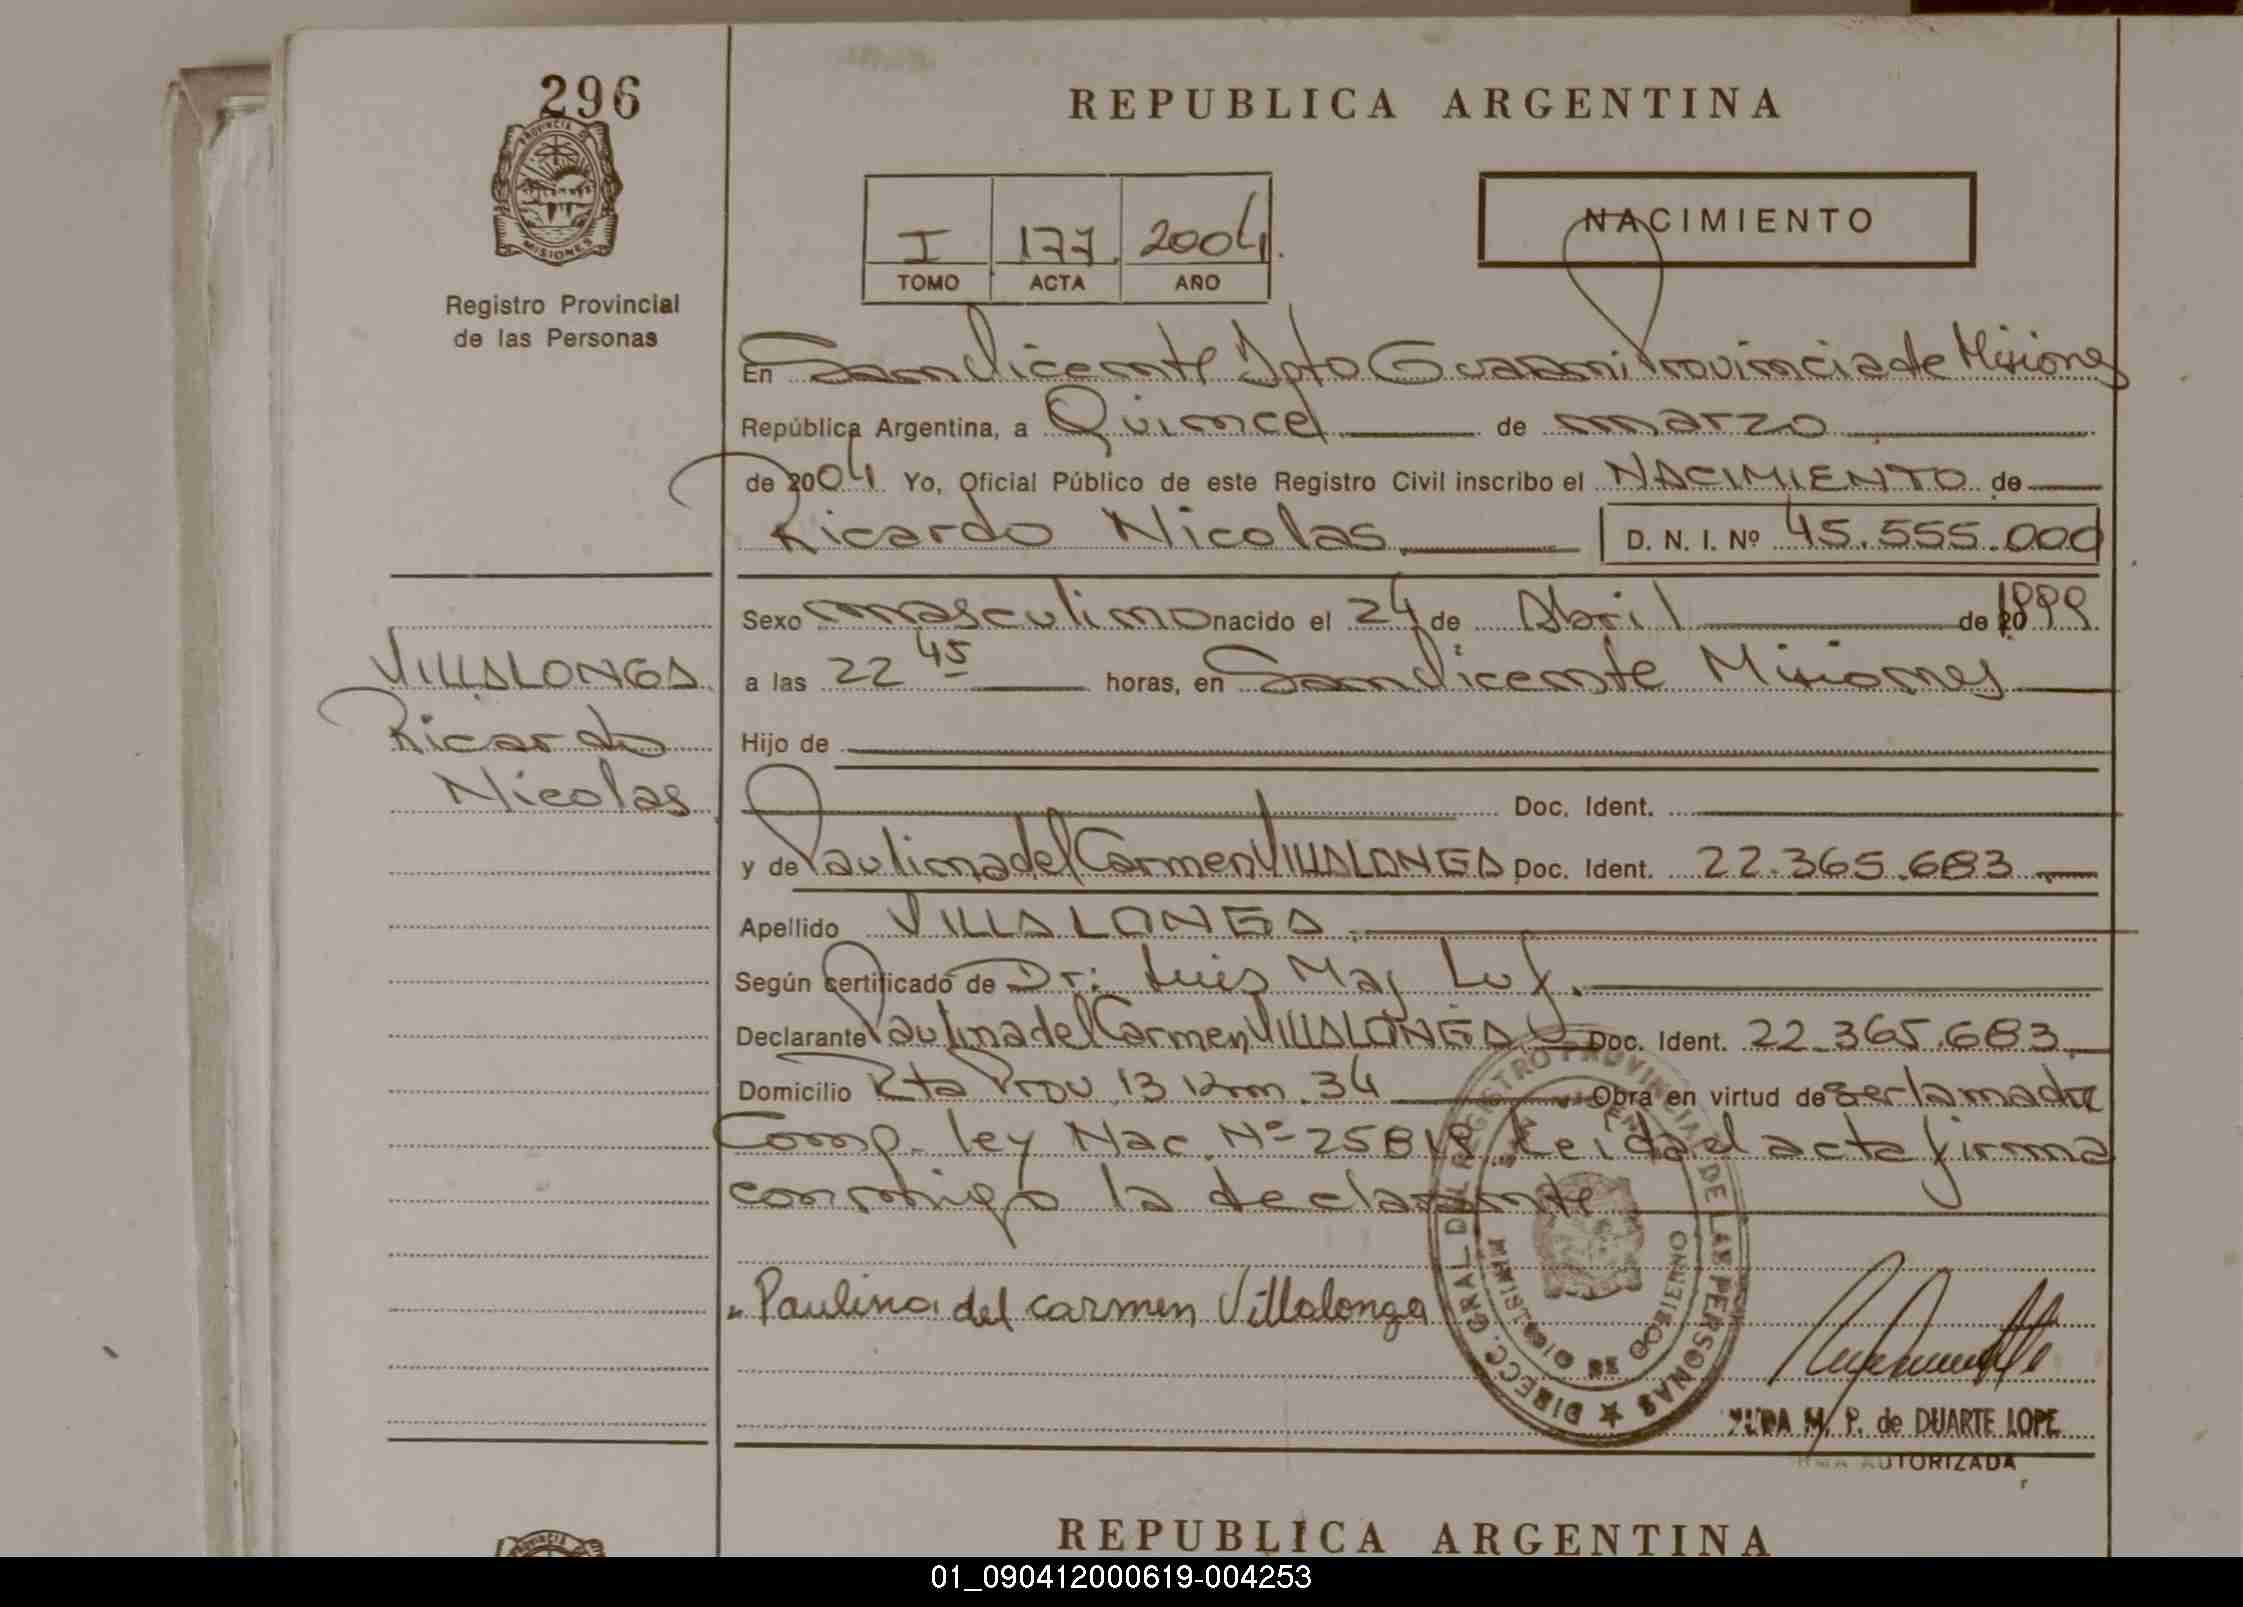 296
PROVINCIA DE
MISIONES
Registro Provincial
de las Personas
REPUBLICA ARGENTINA
I 177 2004
TOMO ACTA AÑO
NACIMIENTO
En San Vicente Dpto Guarani Provincia de Misiones
República Argentina, a Quince de marzo
de 2004 Yo, Oficial Público de este Registro Civil inscribo el NACIMIENTO de
Ricardo Nicolas D. N. I. Nº 45.555.000
Sexo masculino nacido el 24 de Abril de 1999
VILLALONGA
Ricardo
Nicolas
a las 22 45 horas, en San Vicente Misiones
Hijo de
Doc. Ident.
y de Paulina del Carmen VILLALONGA Doc. Ident. 22.365.683
Apellido VILLALONGA
Según certificado de Dr: Luis Maj Luf.
Declarante Paulina del Carmen VILLALONGA Doc. Ident. 22.365.683
Domicilio Rta Prov 13 Km. 34 Obra en virtud de ser la madre
Comp. ley Nac. Nº 25819 Leida el acta firma
conmigo la declarante
Paulina del carmen Villalonga
DIRECC. GRAL DEL REGISTRO PROVINCIAL DE LAS PERSONAS
MINISTERIO DE GOBIERNO
M. P. de DUARTE LOPE
AUTORIZADA
REPUBLICA ARGENTINA
01_090412000619-004253